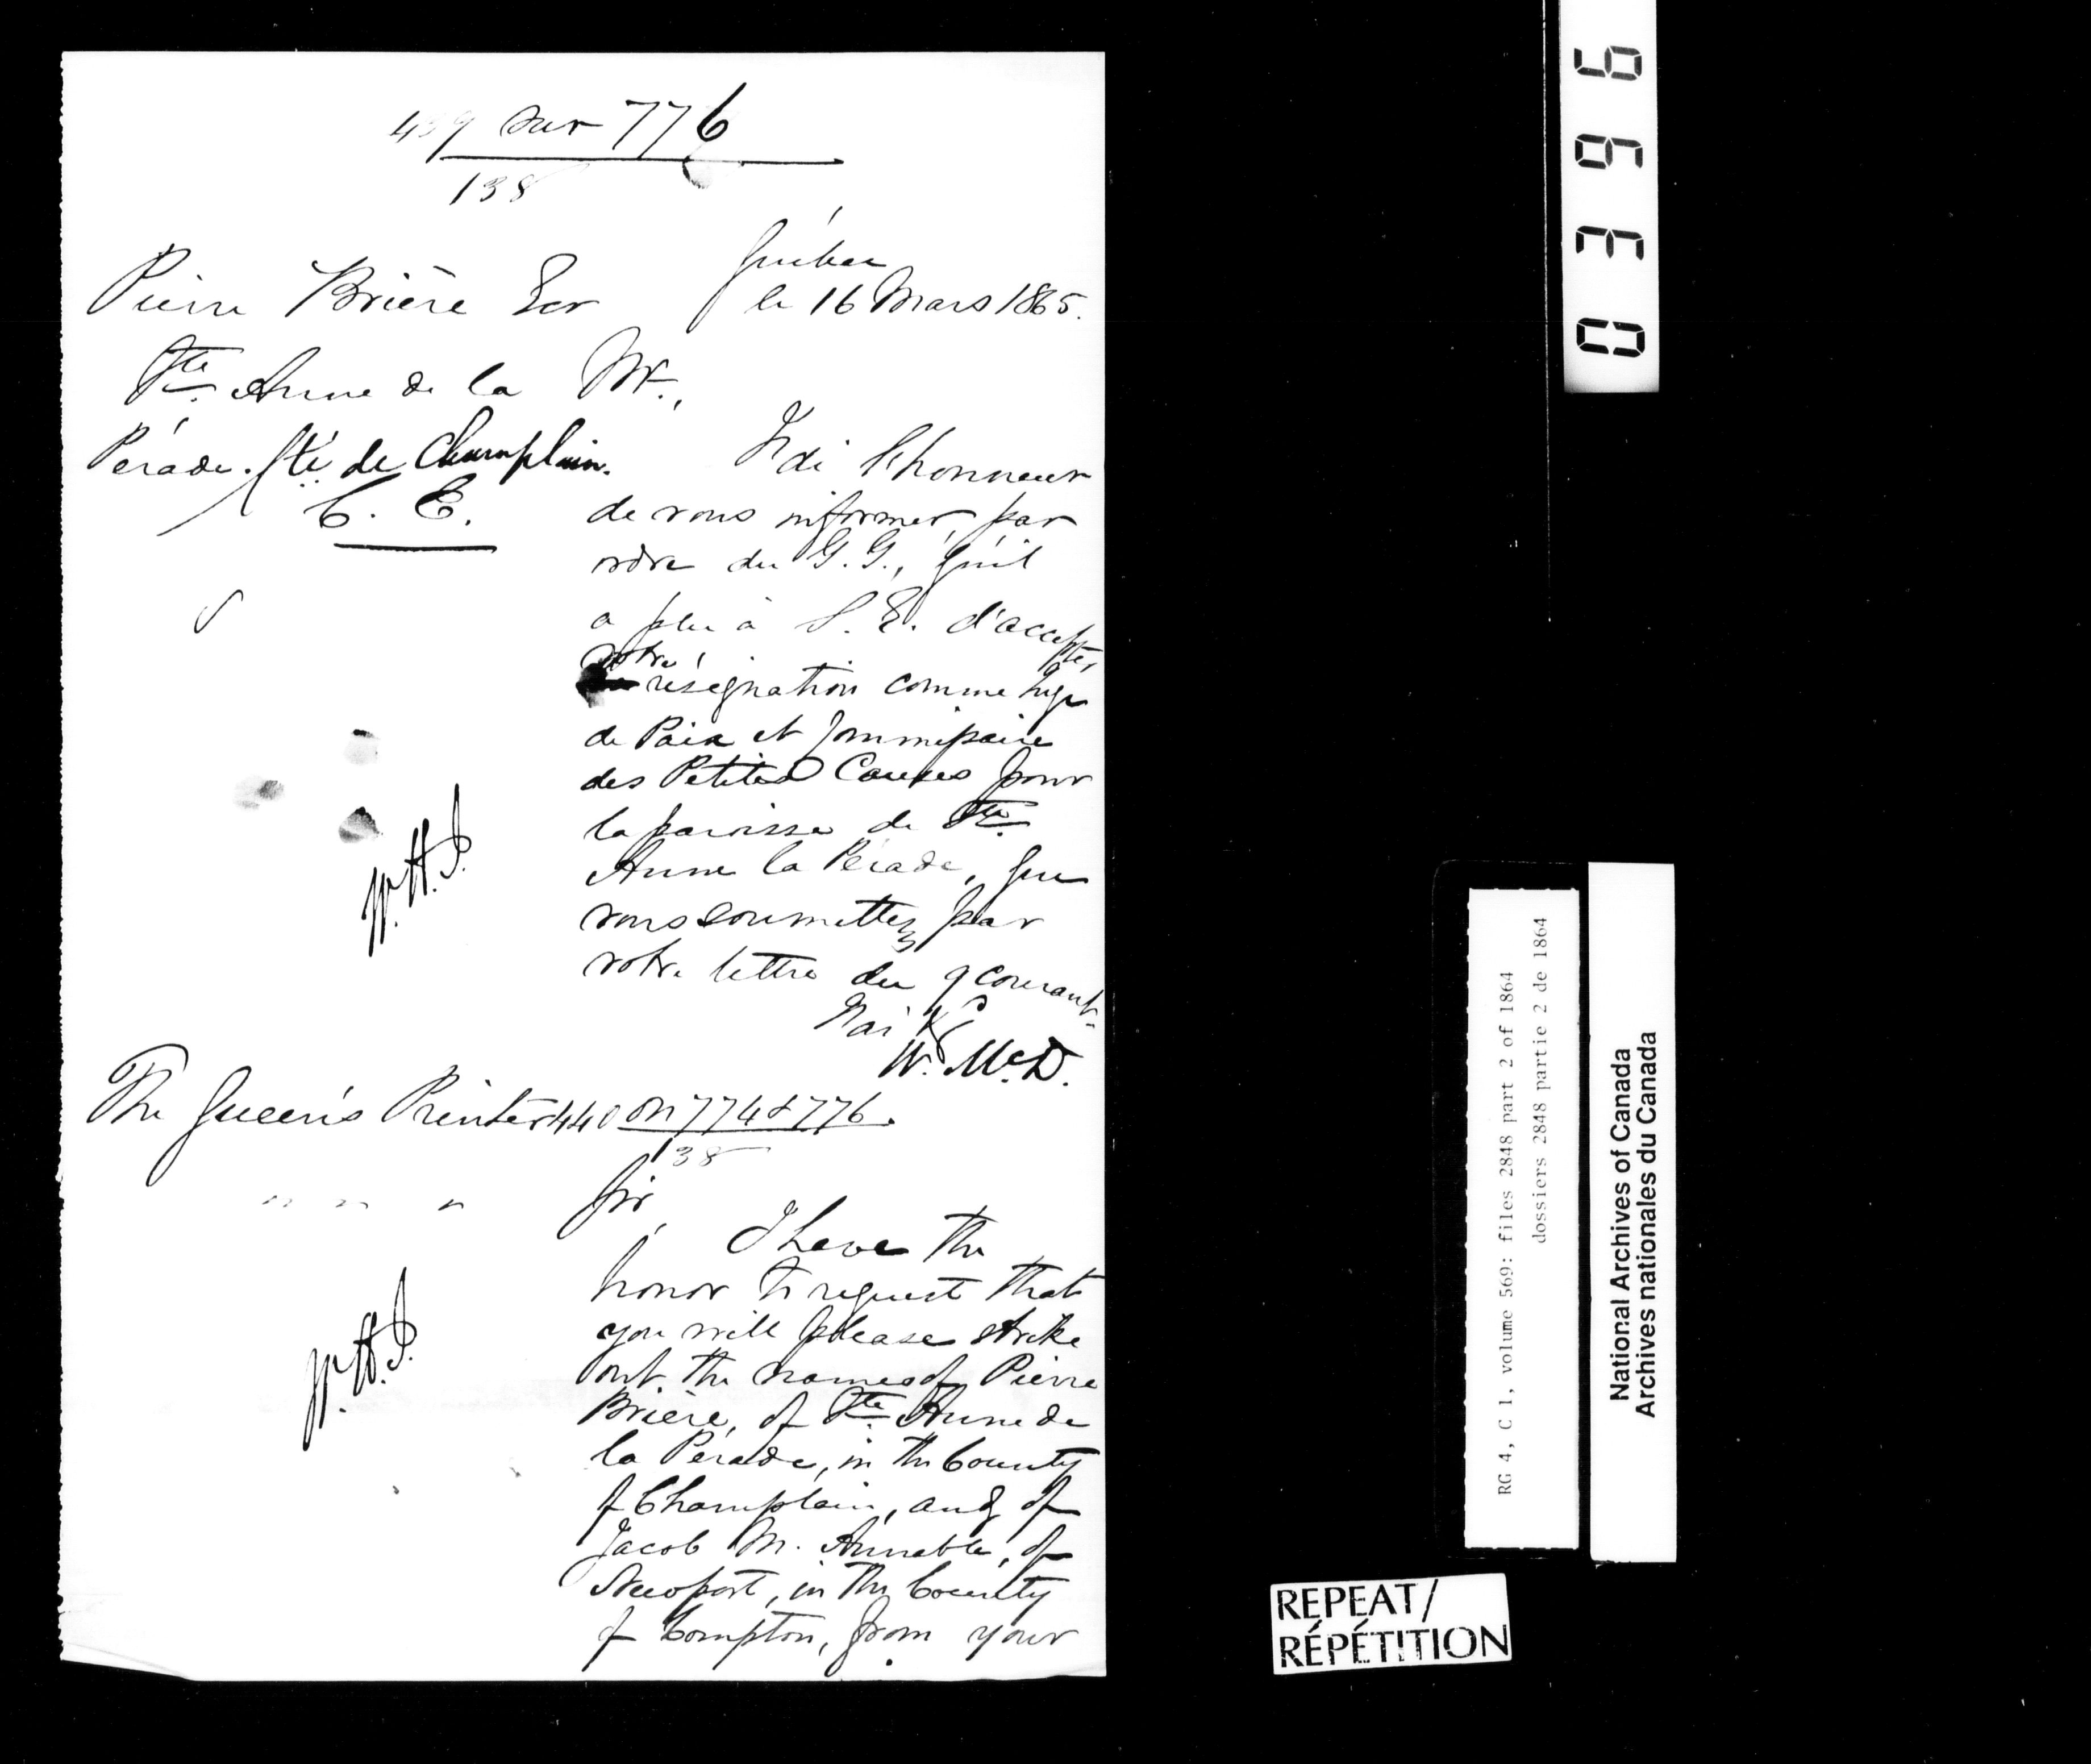 439 sur 776
138
Québec
Pierre Brière Ecr le 16 Mars 1865.
Ste. Anne de la Mr.,
Pérade. Cté. de Champlain. J'ai l'honneur
C. E. de vous informer, par
ordre du G. G., qu'il
a plu à S. E. d'accepter
votre
résignation comme Juge
de Paix et Commissaire
des Petites Causes pour
la paroisse de Ste.
Anne la Pérade, que
vous soumettez par
votre lettre du 9 courant.
J'ai &c
W. McD.
W.H.J.
The Queen's Printer 440 on 774 & 776.
138
" " "
Sir,
I have the
honor to request that
you will please strike
out the names of Pierre
Brière, of Ste. Anne de
la Pérade, in the County
of Champlain, and of
Jacob M. Annable, of
Newport, in the County
of Compton, from your
W.H.J.
0396
RG 4, C 1, volume 569: files 2848 part 2 of 1864
dossiers 2848 partie 2 de 1864
National Archives of Canada
Archives nationales du Canada
REPEAT/
RÉPÉTITION